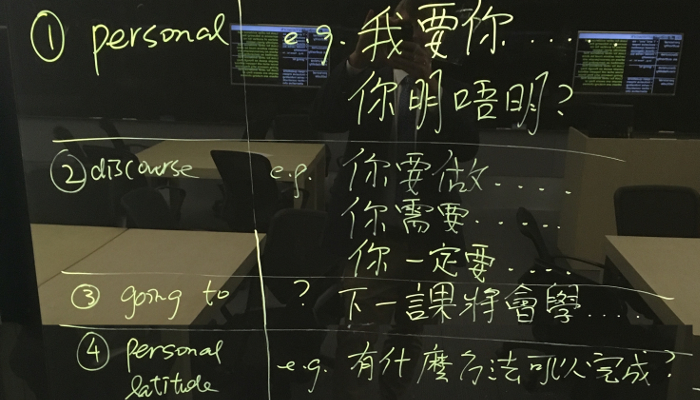 ① personal e.g. 我要你......
你明唔明?
② discourse e.g. 你要做....
你需要.....
你一定要....
③ going to ? 下一課將會學....
④ personal latitude e.g. 有什麼方法可以完成?